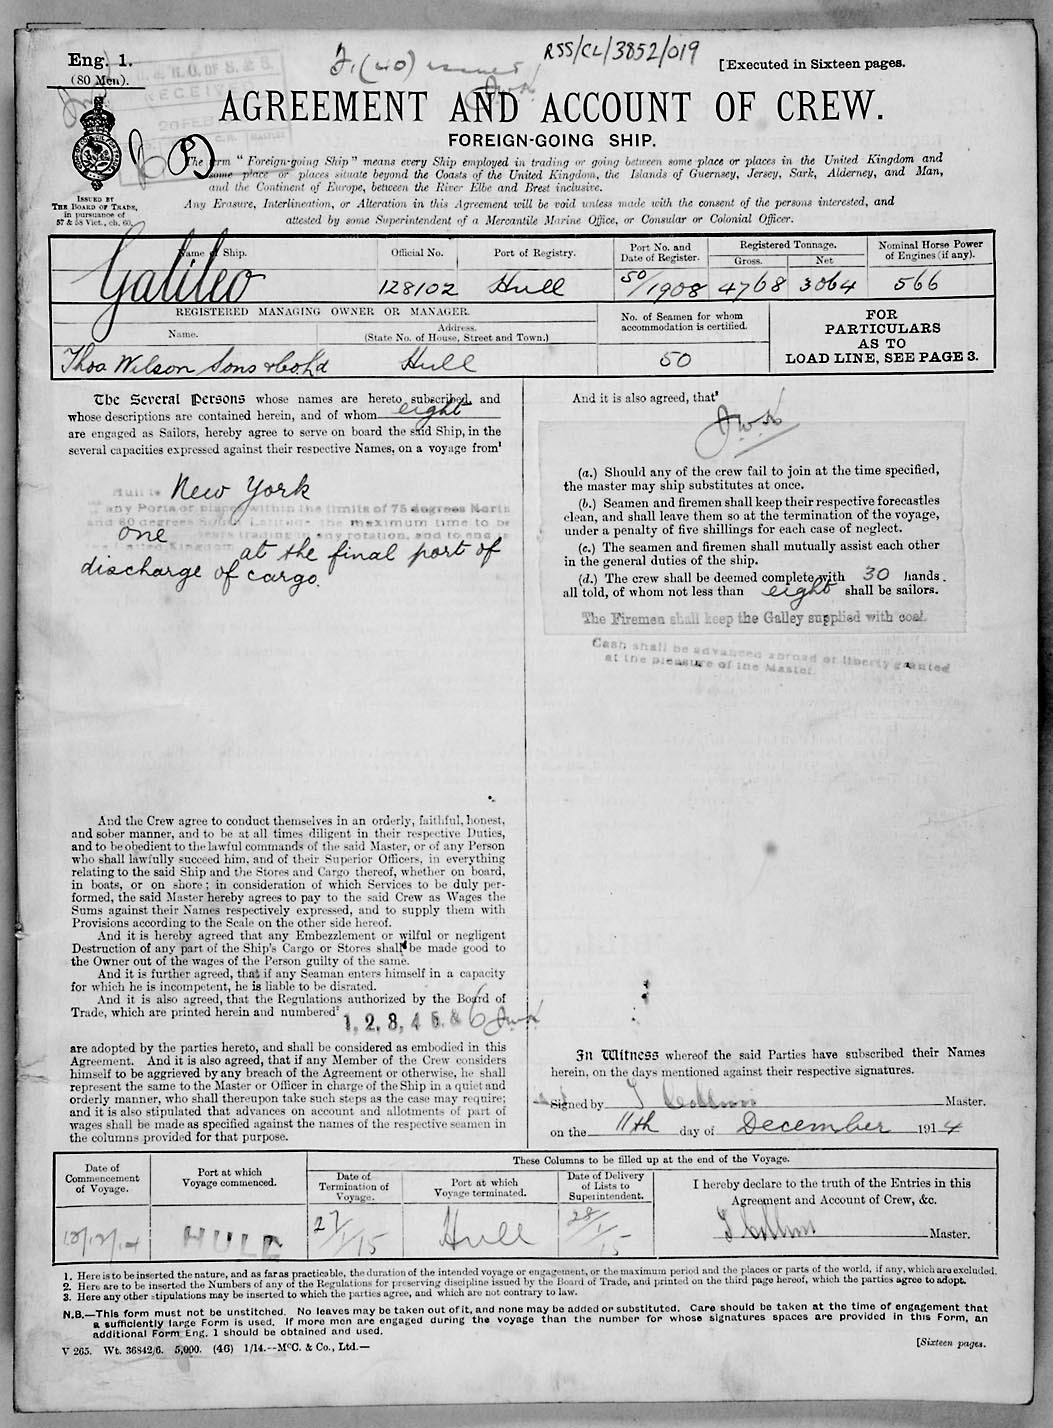 RSS/CL/3852/019
Eng. 1.
(80 Men).
[Executed in Sixteen pages.
AGREEMENT AND ACCOUNT OF CREW.
FOREIGN-GOING SHIP.
The term "Foreign-going Ship" means every Ship employed in trading or going between some place or places in the United Kingdom and
some place or places situate beyond the Coasts of the United Kingdom, the Islands of Guernsey, Jersey, Sark, Alderney, and Man,
and the Continent of Europe, between the River Elbe and Brest inclusive.
Any Erasure, Interlineation, or Alteration in this Agreement will be void unless made with the consent of the persons interested, and
attested by some Superintendent of a Mercantile Marine Office, or Consular or Colonial Officer.
ISSUED BY
THE BOARD OF TRADE,
in pursuance of
57 & 58 Vict., ch. 60.
Name of Ship.
Official No.
Port of Registry.
Port No. and
Date of Register.
Registered Tonnage.
Gross.
Net
Nominal Horse Power
of Engines (if any).
Galileo
128102
Hull
50/1908
4768
3064
566
REGISTERED MANAGING OWNER OR MANAGER.
Name.
Address.
(State No. of House, Street and Town.)
No. of Seamen for whom
accommodation is certified.
FOR
PARTICULARS
AS TO
LOAD LINE, SEE PAGE 3.
Thos Wilson Sons & Co Ld
Hull
50
The Several Persons whose names are hereto subscribed, and
whose descriptions are contained herein, and of whom eight
are engaged as Sailors, hereby agree to serve on board the said Ship, in the
several capacities expressed against their respective Names, on a voyage from¹
Hull to New York
any Ports or places within the limits of 75 degrees North
and 60 degrees South Latitude the maximum time to be
one years trading in any rotation, and to end in
at the final port of
discharge of cargo.
And the Crew agree to conduct themselves in an orderly, faithful, honest,
and sober manner, and to be at all times diligent in their respective Duties,
and to be obedient to the lawful commands of the said Master, or of any Person
who shall lawfully succeed him, and of their Superior Officers, in everything
relating to the said Ship and the Stores and Cargo thereof, whether on board,
in boats, or on shore; in consideration of which Services to be duly per-
formed, the said Master hereby agrees to pay to the said Crew as Wages the
Sums against their Names respectively expressed, and to supply them with
Provisions according to the Scale on the other side hereof.
And it is hereby agreed that any Embezzlement or wilful or negligent
Destruction of any part of the Ship's Cargo or Stores shall be made good to
the Owner out of the wages of the Person guilty of the same.
And it is further agreed, that if any Seaman enters himself in a capacity
for which he is incompetent, he is liable to be disrated.
And it is also agreed, that the Regulations authorized by the Board of
Trade, which are printed herein and numbered² 1, 2, 3, 4 5. & 6
are adopted by the parties hereto, and shall be considered as embodied in this
Agreement. And it is also agreed, that if any Member of the Crew considers
himself to be aggrieved by any breach of the Agreement or otherwise, he shall
represent the same to the Master or Officer in charge of the Ship in a quiet and
orderly manner, who shall thereupon take such steps as the case may require;
and it is also stipulated that advances on account and allotments of part of
wages shall be made as specified against the names of the respective seamen in
the columns provided for that purpose.
And it is also agreed, that³
(a.) Should any of the crew fail to join at the time specified,
the master may ship substitutes at once.
(b.) Seamen and firemen shall keep their respective forecastles
clean, and shall leave them so at the termination of the voyage,
under a penalty of five shillings for each case of neglect.
(c.) The seamen and firemen shall mutually assist each other
in the general duties of the ship.
(d.) The crew shall be deemed complete with 30 hands.
all told, of whom not less than eight shall be sailors.
The Firemen shall keep the Galley supplied with coal.
Cash shall be advanced abroad or liberty granted
at the pleasure of the Master
In Witness whereof the said Parties have subscribed their Names
herein, on the days mentioned against their respective signatures.
Signed by Master.
on the 11th day of December 1914
Date of
Commencement
of Voyage.
Port at which
Voyage commenced.
These Columns to be filled up at the end of the Voyage.
Date of
Termination of
Voyage.
Port at which
Voyage terminated.
Date of Delivery
of Lists to
Superintendent.
I hereby declare to the truth of the Entries in this
Agreement and Account of Crew, &c.
Master.
HULL
27/1/15
Hull
28/1/15
1. Here is to be inserted the nature, and as far as practicable, the duration of the intended voyage or engagement, or the maximum period and the places or parts of the world, if any, which are excluded.
2. Here are to be inserted the Numbers of any of the Regulations for preserving discipline issued by the Board of Trade, and printed on the third page hereof, which the parties agree to adopt.
3. Here any other stipulations may be inserted to which the parties agree, and which are not contrary to law.
N.B.—This form must not be unstitched. No leaves may be taken out of it, and none may be added or substituted. Care should be taken at the time of engagement that
a sufficiently large Form is used. If more men are engaged during the voyage than the number for whose signatures spaces are provided in this Form, an
additional Form Eng. 1 should be obtained and used.
V 265. Wt. 36842/6. 5,000. (46) 1/14.--McC. & Co., Ltd.—
[Sixteen pages.